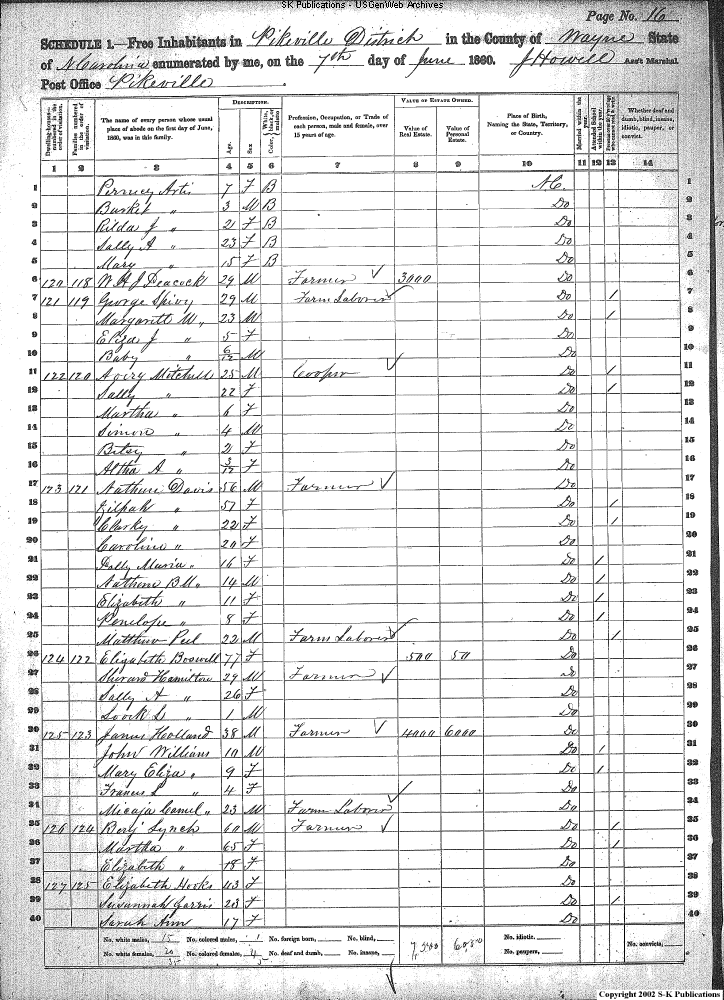 SK Publications - USGenWeb Archives
Page No. 16
SCHEDULE 1.—Free Inhabitants in Pikeville District in the County of Wayne State
of N Carolina enumerated by me, on the 7th day of June 1860. J Howell Ass't Marshal
Post Office Pikeville.
Dwelling-houses numbered in the order of visitation. Families numbered in the order of visitation. The name of every person whose usual place of abode on the first day of June, 1860, was in this family. DESCRIPTION. Age. Sex. Color, White, black, or mulatto. Profession, Occupation, or Trade of each person, male and female, over 15 years of age. VALUE OF ESTATE OWNED. Value of Real Estate. Value of Personal Estate. Place of Birth, Naming the State, Territory, or Country. Married within the year. Attended School within the year. Whether deaf and dumb, blind, insane, idiotic, pauper, or convict.
1 2 3 4 5 6 7 8 9 10 11 12 13 14
1 Artis 7 F B N.C. 1
2 Burket " 3 M B Do 2
3 Rilda J " 21 F B Do 3
4 Sally A " 23 F B Do 4
5 Mary " 15 F B Do 5
6 120 118 W H J Peacock 29 M Farmer ✓ 3000 Do 6
7 121 119 George Spivy 29 M Farm Laborer ✓ Do / 7
8 Margarett W " 23 M Do / 8
9 Eliza J " 5 F Do 9
10 Baby " 6/12 M Do 10
11 122 120 Avery Mitchell 25 M Cooper ✓ Do / 11
12 Sally " 22 F Do / 12
13 Martha " 6 F Do 13
14 Simon " 4 M Do 14
15 Betsy " 2 F Do 15
16 Altha A " 3/12 F Do 16
17 123 121 Davis 56 M Farmer ✓ Do 17
18 Zilpah " 57 F Do / 18
19 Clarky " 22 F Do / 19
20 Caroline " 20 F Do 20
21 Maria " 16 F Do / 21
22 14 M Do / 22
23 Elizabeth " 11 F Do / 23
24 Penelope " 8 F Do / 24
25 Matthew Peel 22 M Farm Laborer ✓ Do / 25
26 124 122 Elizabeth Boswell 77 F 500 50 Do 26
27 Hamilton 29 M Farmer ✓ Do 27
28 Sally A " 26 F Do 28
29 " 1 M Do 29
30 125 123 James Holland 38 M Farmer ✓ 4000 6000 Do 30
31 John Williams 10 M Do / 31
32 Mary Eliza " 9 F Do / 32
33 Francis L " 4 F Do 33
34 Micaja " 23 M Farm Laborer ✓ Do 34
35 126 124 Benj Lynch 60 M Farmer ✓ Do / 35
36 Martha " 65 F Do / 36
37 Elizabeth " 18 F Do 37
38 127 125 Elizabeth Hooks 43 F Do 38
39 Susannah Garris 23 F Do / 39
40 Sarah Ann 17 F Do 40
No. white males, 15 No. colored males, 1 No. foreign born, No. blind, No. idiotic,
No. white females, 20 No. colored females, 4 No. deaf and dumb, No. insane, No. paupers, No. convicts,
35 5
Copyright 2002 S-K Publications